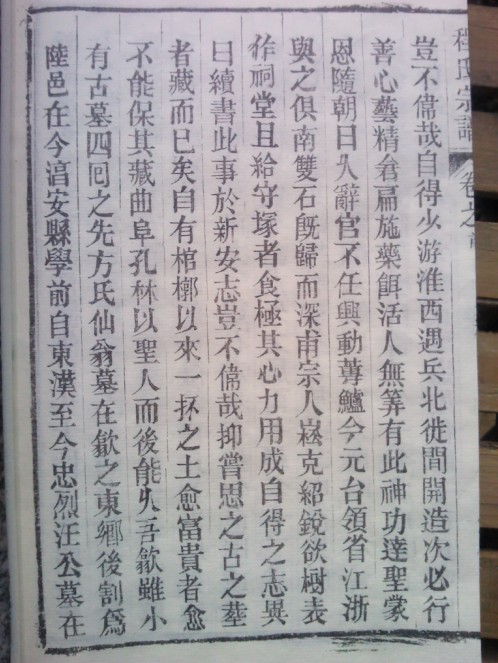 程氏宗譜 卷之
豈不偉哉自得少游淮西遇兵北徙間開造次必行
善心藝精倉扁施藥餌活人無筭有此神功達聖蒙
恩隨朝日久辭官不任興動蓴鱸今元台領省江浙
與之俱南雙石旣歸而深甫宗人崧克紹銳欲樹表
作祠堂且給守塚者食極其心力用成自得之志異
曰續書此事於新安志豈不偉哉抑嘗思之古之塟
者藏而已矣自有棺槨以來一抔之土愈富貴者愈
不能保其藏曲阜孔林以聖人而後能久吾歙雖小
有古墓四囘之先方氏仙翁墓在歙之東鄉後割為
陸邑在今淯安縣學前自東漢至今忠烈汪公墓在